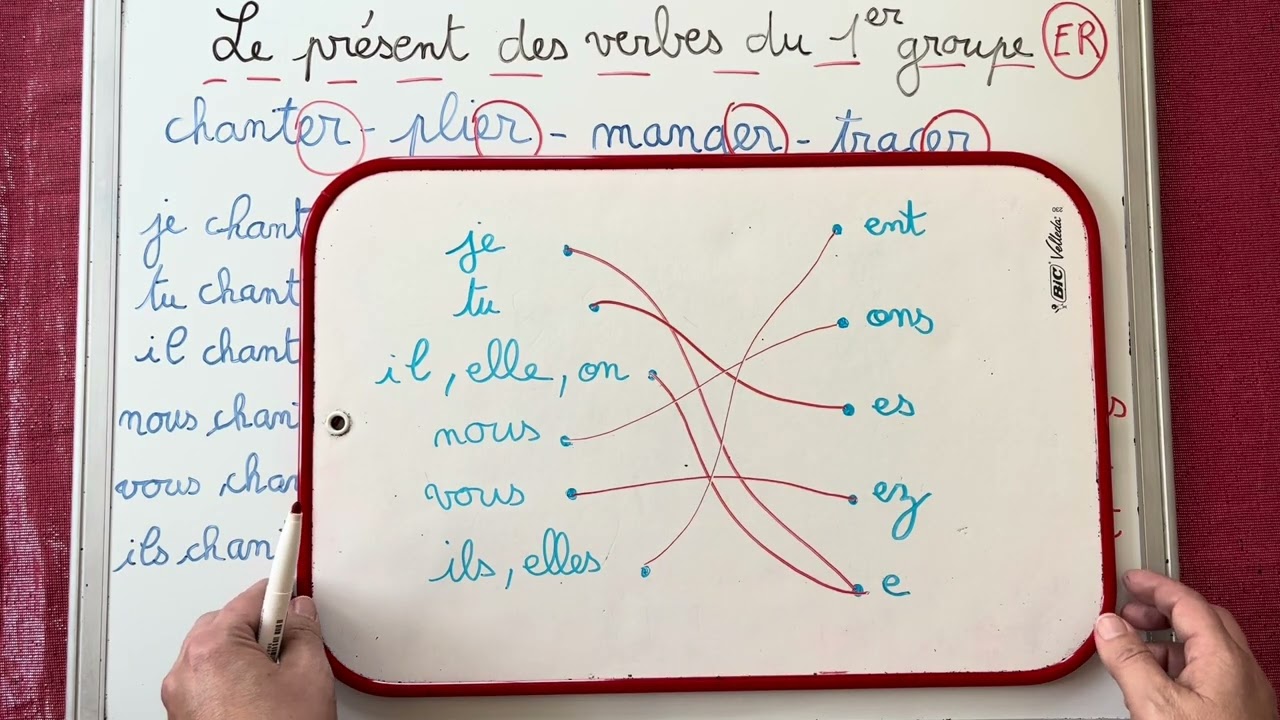 Le présent des verbes du 1er groupe ER
chanter - plier - manger - tracer
je chant
tu chant
il chant
nous chan
vous chan
ils chan
je
tu
il, elle, on
nous
vous
ils, elles
ent
ons
es
ez
e
BIC Velleda
s